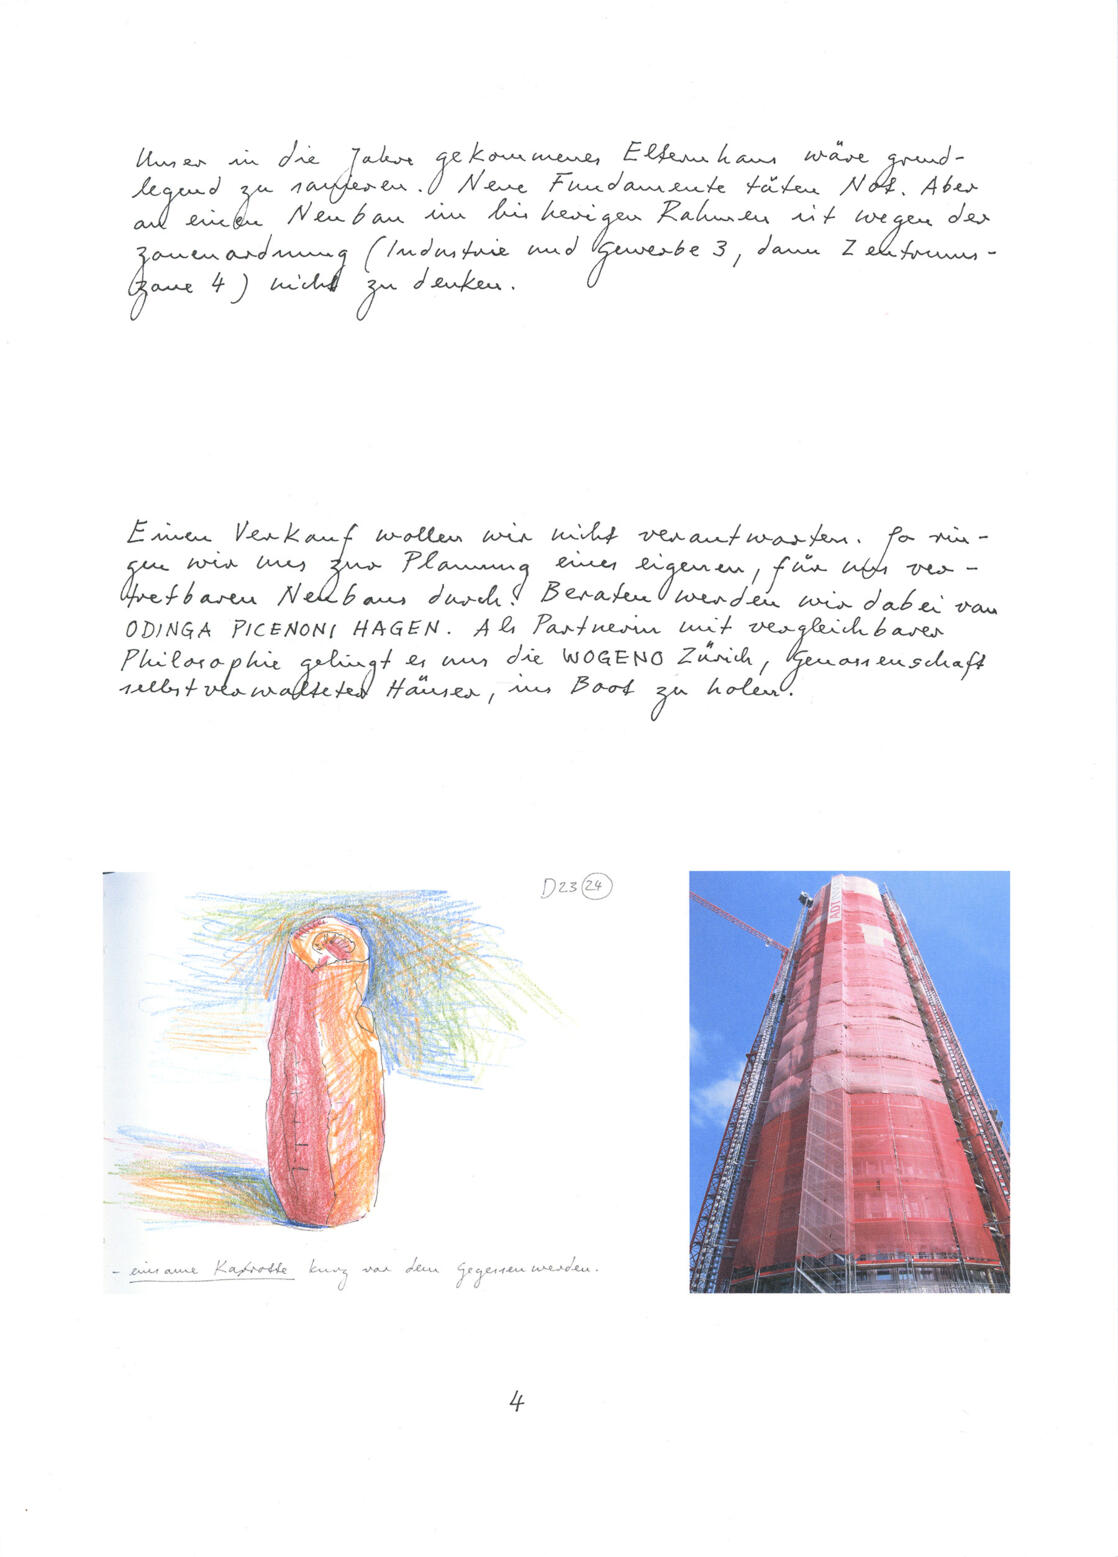 Unser in die Jahre gekommenes Elternhaus wäre grund-
legend zu sanieren. Neue Fundamente täten Not. Aber
an einen Neubau im bisherigen Rahmen ist wegen der
Zonenordnung (Industrie und Gewerbe 3, dann Zentrums-
zone 4) nicht zu denken.
Einen Verkauf wollen wir nicht verantworten. So rin-
gen wir uns zur Planung eines eigenen, für uns ver-
tretbaren Neubaus durch. Beraten werden wir dabei von
ODINGA PICENONI HAGEN. Als Partnerin mit vergleichbarer
Philosophie gelingt es uns die WOGENO Zürich, Genossenschaft
selbstverwalteter Häuser, ins Boot zu holen.
D23 24
- einsame Karotte kurz vor dem Gegessenwerden.
4